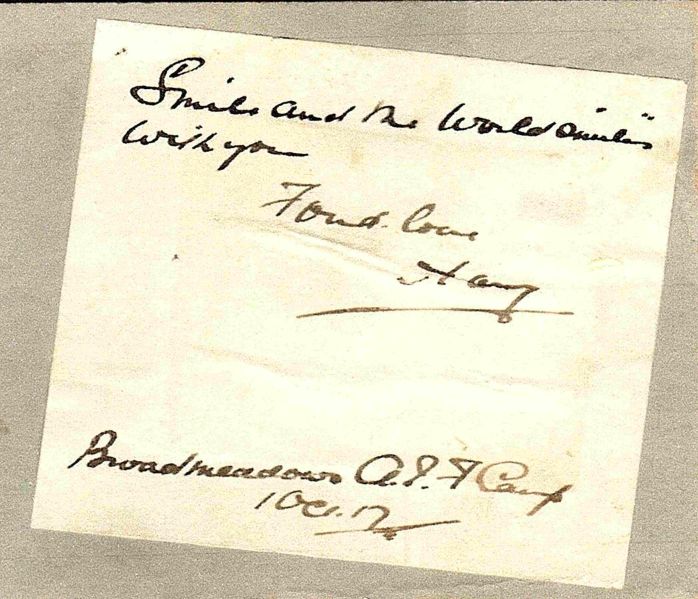 Smile and the World smiles"
with you
Fond love
Harry
Broadmeadows A.I.F Camp
1 Oct. 17